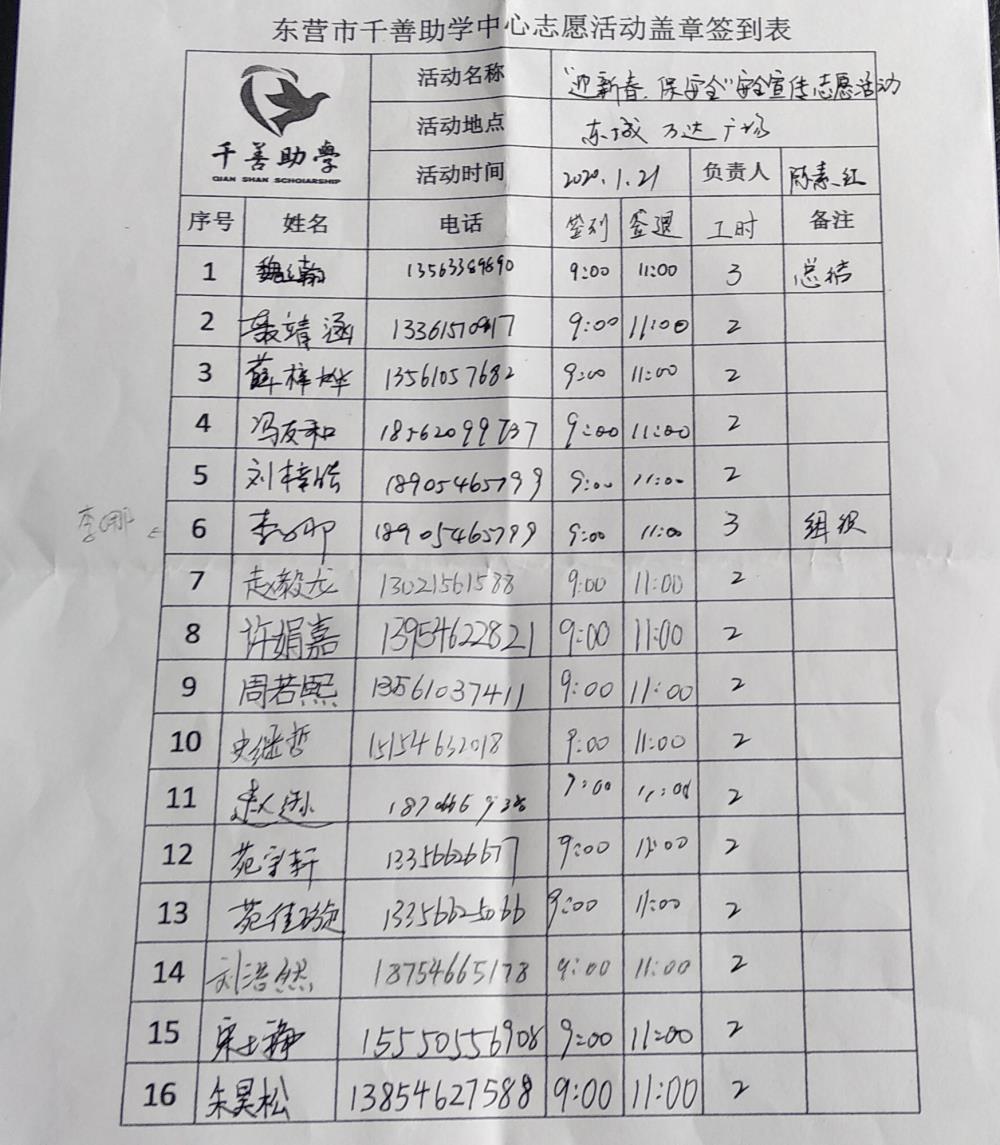 东营市千善助学中心志愿活动盖章签到表
千善助學
QIAN SHAN SCHOLARSHIP
活动名称 "迎新春、保安全"安全宣传志愿活动
活动地点 东城万达广场
活动时间 2020.1.21 负责人 陈素红
序号 姓名 电话 签到 签退 工时 备注
1 13563389890 9:00 11:00 3 总结
2 聂靖涵 13361570917 9:00 11:00 2
3 薛梓烨 13561057682 9:00 11:00 2
4 冯友和 18562099737 9:00 11:00 2
5 刘梓皓 18905465799 9:00 11:00 2
李娜
6 李娜 18905465799 9:00 11:00 3 组织
7 赵毅龙 13021561588 9:00 11:00 2
8 许娟嘉 13954622821 9:00 11:00 2
9 周若熙 13561037411 9:00 11:00 2
10 史继哲 15154632018 9:00 11:00 2
11 9:00 11:00 2
12 苑宇轩 13356626677 9:00 11:00 2
13 苑佳 13356625066 9:00 11:00 2
14 刘浩然 18754665178 9:00 11:00 2
15 15550556908 9:00 11:00 2
16 朱昊松 13854627588 9:00 11:00 2